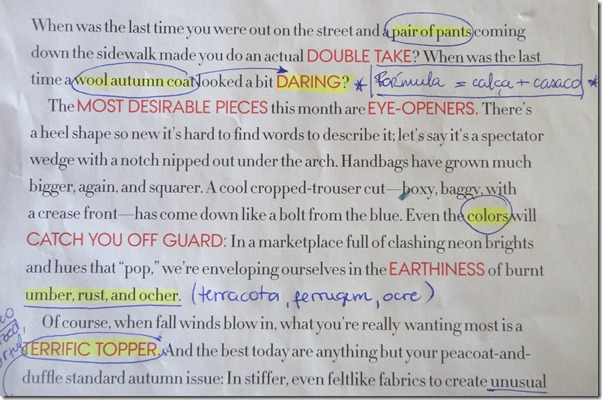 When was the last time you were out on the street and a pair of pants coming
down the sidewalk made you do an actual DOUBLE TAKE? When was the last
time a wool autumn coat looked a bit DARING? * Formula = calça + casaco *
The MOST DESIRABLE PIECES this month are EYE-OPENERS. There's
a heel shape so new it's hard to find words to describe it; let's say it's a spectator
wedge with a notch nipped out under the arch. Handbags have grown much
bigger, again, and squarer. A cool cropped-trouser cut—boxy, baggy, with
a crease front—has come down like a bolt from the blue. Even the colors will
CATCH YOU OFF GUARD: In a marketplace full of clashing neon brights
and hues that “pop,” we're enveloping ourselves in the EARTHINESS of burnt
umber, rust, and ocher. (terracota, ferrugem, ocre)
Of course, when fall winds blow in, what you're really wanting most is a
TERRIFIC TOPPER. And the best today are anything but your peacoat-and-
duffle standard autumn issue: In stiffer, even feltlike fabrics to create unusual